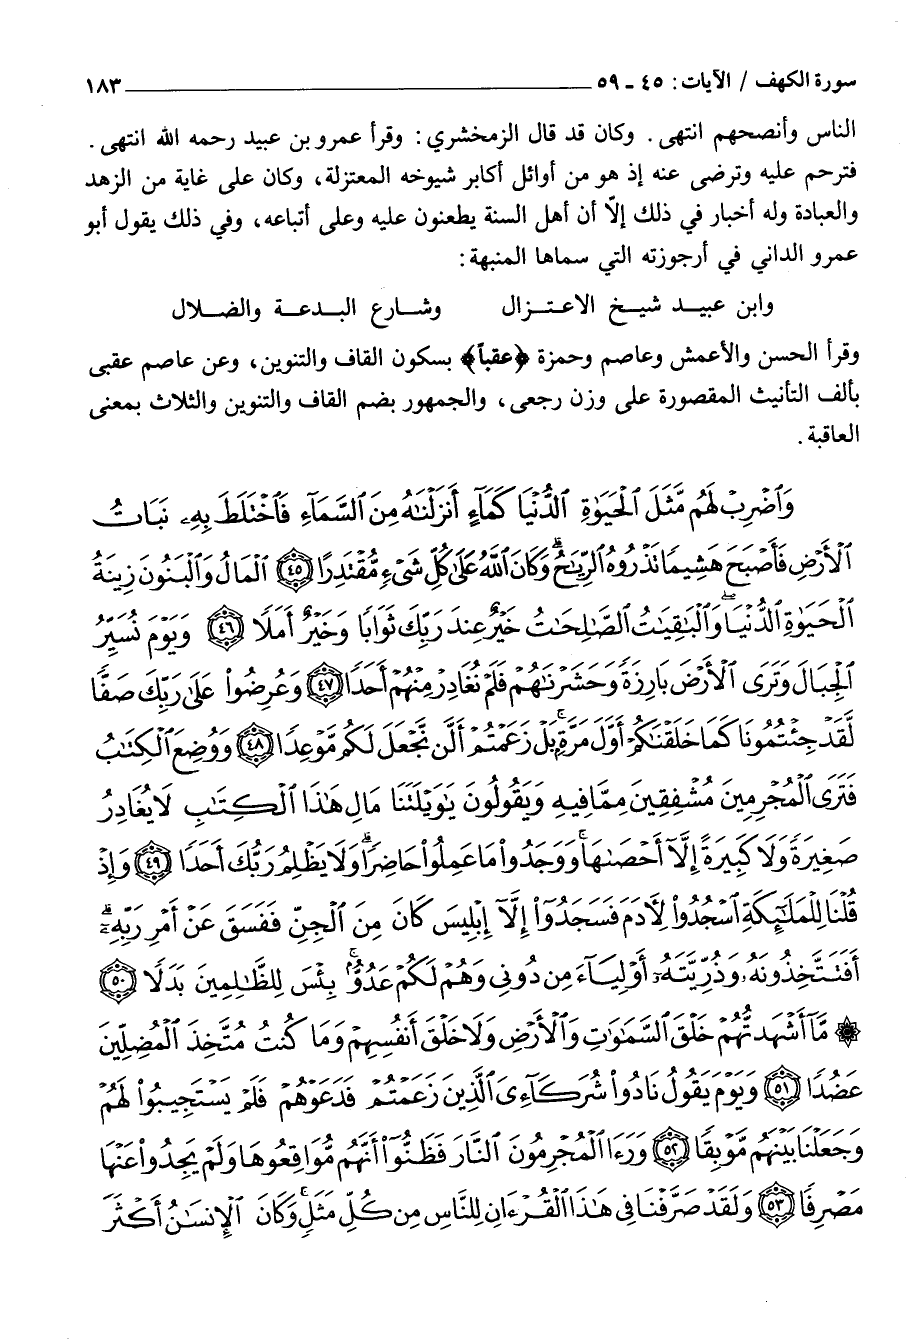 سورة الكهف / الآيات: ٤٥ ـ ٥٩ ١٨٣
الناس وأنصحهم انتهى. وكان قد قال الزمخشري: وقرأ عمرو بن عبيد رحمه الله انتهى.
فترحم عليه وترضى عنه إذ هو من أوائل أكابر شيوخه المعتزلة، وكان على غاية من الزهد
والعبادة وله أخبار في ذلك إلّا أن أهل السنة يطعنون عليه وعلى أتباعه، وفي ذلك يقول أبو
عمرو الداني في أرجوزته التي سماها المنبهة:
وابن عبيد شيخ الاعتزال وشارع البدعة والضلال
وقرأ الحسن والأعمش وعاصم وحمزة ﴿عقباً﴾ بسكون القاف والتنوين، وعن عاصم عقبى
بألف التأنيث المقصورة على وزن رجعى، والجمهور بضم القاف والتنوين والثلاث بمعنى
العاقبة.
وَٱضْرِبْ لَهُم مَّثَلَ ٱلْحَيَوٰةِ ٱلدُّنْيَا كَمَآءٍ أَنزَلْنَٰهُ مِنَ ٱلسَّمَآءِ فَٱخْتَلَطَ بِهِۦ نَبَاتُ
ٱلْأَرْضِ فَأَصْبَحَ هَشِيمًا تَذْرُوهُ ٱلرِّيَٰحُ ۗ وَكَانَ ٱللَّهُ عَلَىٰ كُلِّ شَىْءٍ مُّقْتَدِرًا ٤٥ ٱلْمَالُ وَٱلْبَنُونَ زِينَةُ
ٱلْحَيَوٰةِ ٱلدُّنْيَا ۖ وَٱلْبَٰقِيَٰتُ ٱلصَّٰلِحَٰتُ خَيْرٌ عِندَ رَبِّكَ ثَوَابًا وَخَيْرٌ أَمَلًا ٤٦ وَيَوْمَ نُسَيِّرُ
ٱلْجِبَالَ وَتَرَى ٱلْأَرْضَ بَارِزَةً وَحَشَرْنَٰهُمْ فَلَمْ نُغَادِرْ مِنْهُمْ أَحَدًا ٤٧ وَعُرِضُوا۟ عَلَىٰ رَبِّكَ صَفًّا
لَّقَدْ جِئْتُمُونَا كَمَا خَلَقْنَٰكُمْ أَوَّلَ مَرَّةٍۭ ۚ بَلْ زَعَمْتُمْ أَلَّن نَّجْعَلَ لَكُم مَّوْعِدًا ٤٨ وَوُضِعَ ٱلْكِتَٰبُ
فَتَرَى ٱلْمُجْرِمِينَ مُشْفِقِينَ مِمَّا فِيهِ وَيَقُولُونَ يَٰوَيْلَتَنَا مَالِ هَٰذَا ٱلْكِتَٰبِ لَا يُغَادِرُ
صَغِيرَةً وَلَا كَبِيرَةً إِلَّآ أَحْصَىٰهَا ۚ وَوَجَدُوا۟ مَا عَمِلُوا۟ حَاضِرًا ۗ وَلَا يَظْلِمُ رَبُّكَ أَحَدًا ٤٩ وَإِذْ
قُلْنَا لِلْمَلَٰٓئِكَةِ ٱسْجُدُوا۟ لِءَادَمَ فَسَجَدُوٓا۟ إِلَّآ إِبْلِيسَ كَانَ مِنَ ٱلْجِنِّ فَفَسَقَ عَنْ أَمْرِ رَبِّهِۦٓ ۗ
أَفَتَتَّخِذُونَهُۥ وَذُرِّيَّتَهُۥٓ أَوْلِيَآءَ مِن دُونِى وَهُمْ لَكُمْ عَدُوٌّۢ ۚ بِئْسَ لِلظَّٰلِمِينَ بَدَلًا ٥٠
۞ مَّآ أَشْهَدتُّهُمْ خَلْقَ ٱلسَّمَٰوَٰتِ وَٱلْأَرْضِ وَلَا خَلْقَ أَنفُسِهِمْ وَمَا كُنتُ مُتَّخِذَ ٱلْمُضِلِّينَ
عَضُدًا ٥١ وَيَوْمَ يَقُولُ نَادُوا۟ شُرَكَآءِىَ ٱلَّذِينَ زَعَمْتُمْ فَدَعَوْهُمْ فَلَمْ يَسْتَجِيبُوا۟ لَهُمْ
وَجَعَلْنَا بَيْنَهُم مَّوْبِقًا ٥٢ وَرَءَا ٱلْمُجْرِمُونَ ٱلنَّارَ فَظَنُّوٓا۟ أَنَّهُم مُّوَاقِعُوهَا وَلَمْ يَجِدُوا۟ عَنْهَا
مَصْرِفًا ٥٣ وَلَقَدْ صَرَّفْنَا فِى هَٰذَا ٱلْقُرْءَانِ لِلنَّاسِ مِن كُلِّ مَثَلٍ ۚ وَكَانَ ٱلْإِنسَٰنُ أَكْثَرَ